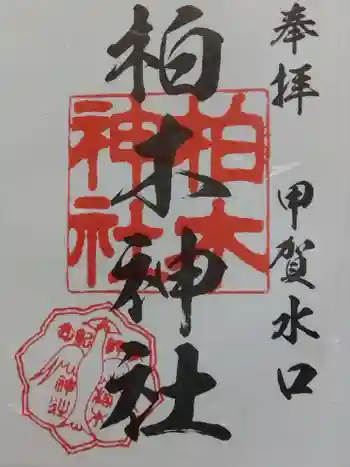 奉拝　甲賀水口
柏木神社
柏木
神社